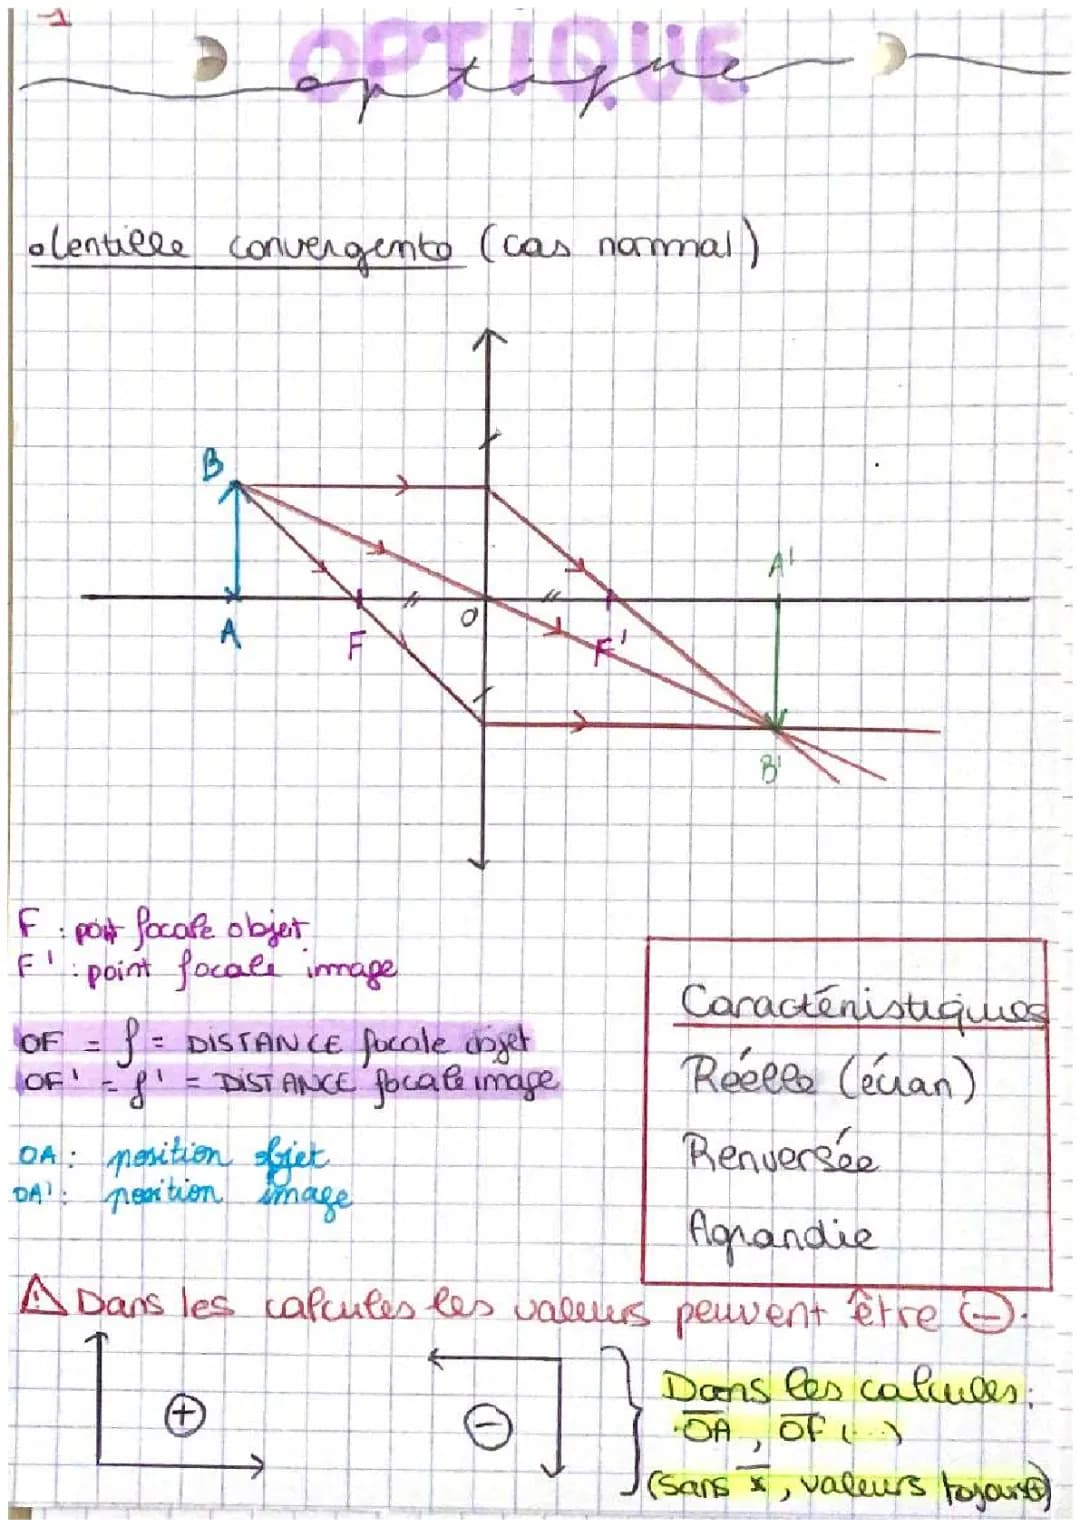 1
OPTIQUE
optique
• lentille convergente (cas normal)
B
A'
O
A
F
F'
B'
F : point focale objet
F' : point focale image
OF = f = DISTANCE focale objet
OF' = f' = DISTANCE focale image
OA : position objet
OA' : position image
Caractéristiques
Réelle (écran)
Renversée
Agrandie
⚠ Dans les calcules les valeurs peuvent être ⊖.
⊕
⊖
Dans les calcules :
• O̅A̅ , O̅F̅ (...)
(sans x̅, valeurs toujours ⊕)